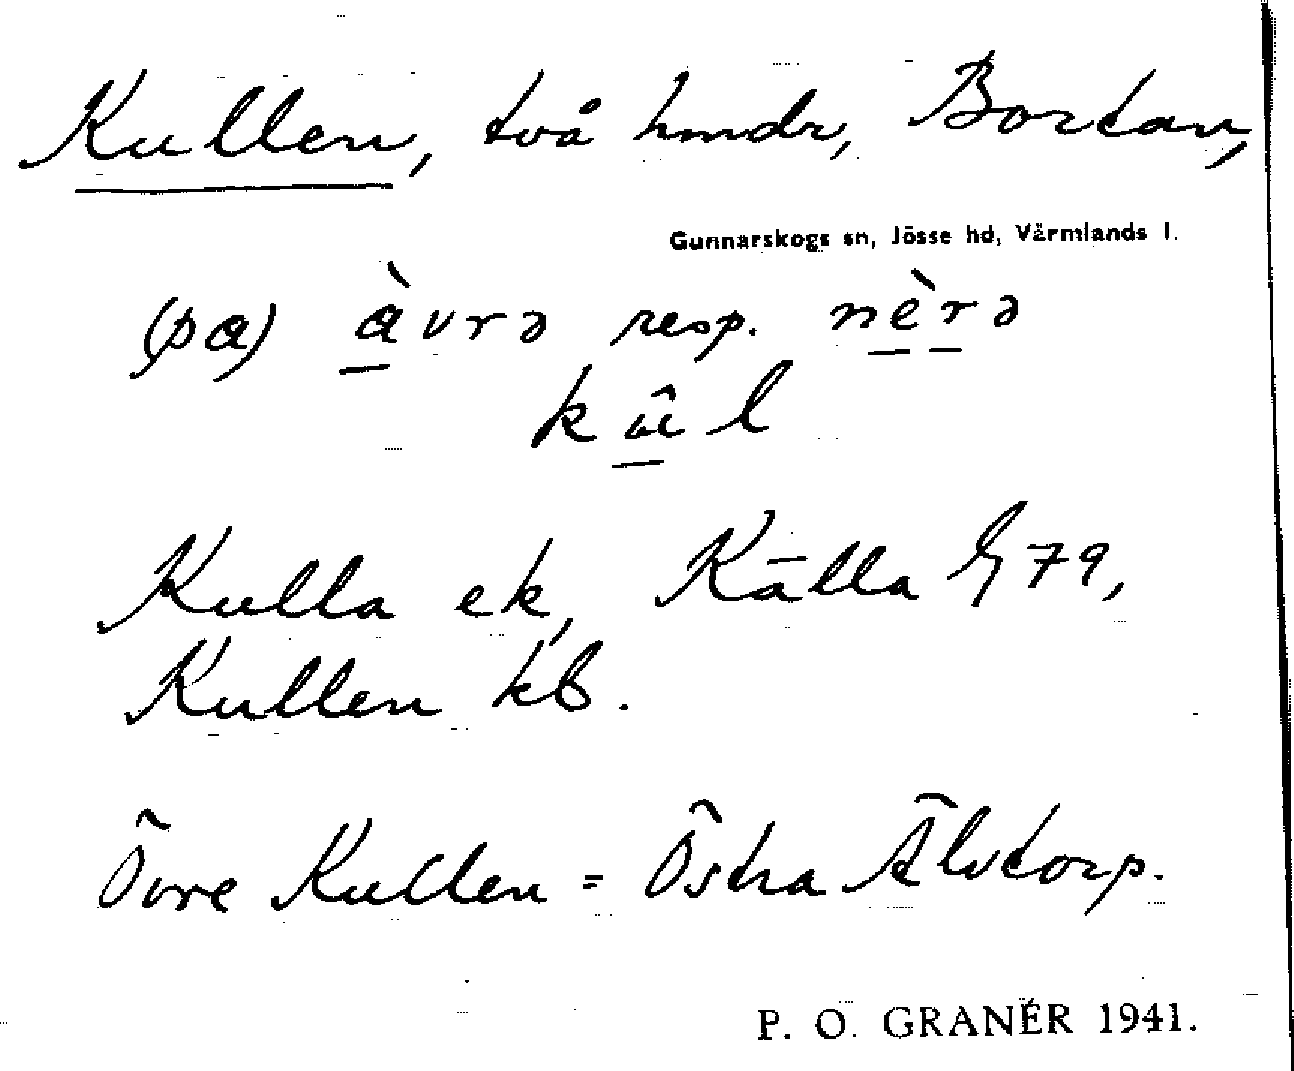 Kullen, två hmdr, Bortan,
Gunnarskogs sn, Jösse hd, Värmlands l.
(på) àvrə resp. nèrə
kûl
Kulla ek, Källa 79,
Kullen kb.
Övre Kullen = Östra Älvtorp.
P. O. GRANÉR 1941.